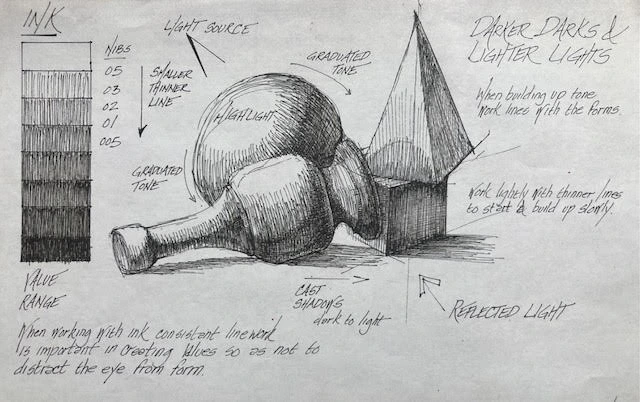 INK
NIBS
05
03
02
01
005
SMALLER
THINNER
LINE
VALUE
RANGE
LIGHT SOURCE
GRADUATED
TONE
HIGHLIGHT
GRADUATED
TONE
CAST
SHADOWS
dark to light
REFLECTED LIGHT
DARKER DARKS &
LIGHTER LIGHTS
When building up tone
work lines with the forms.
Work lightly with thinner lines
to start & build up slowly.
When working with ink consistant linework
is important in creating values so as not to
distract the eye from form.